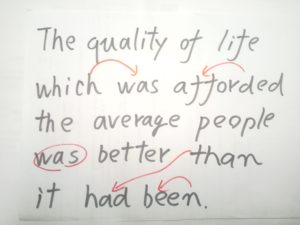 The quality of life
which was afforded
the average people
was better than
it had been.